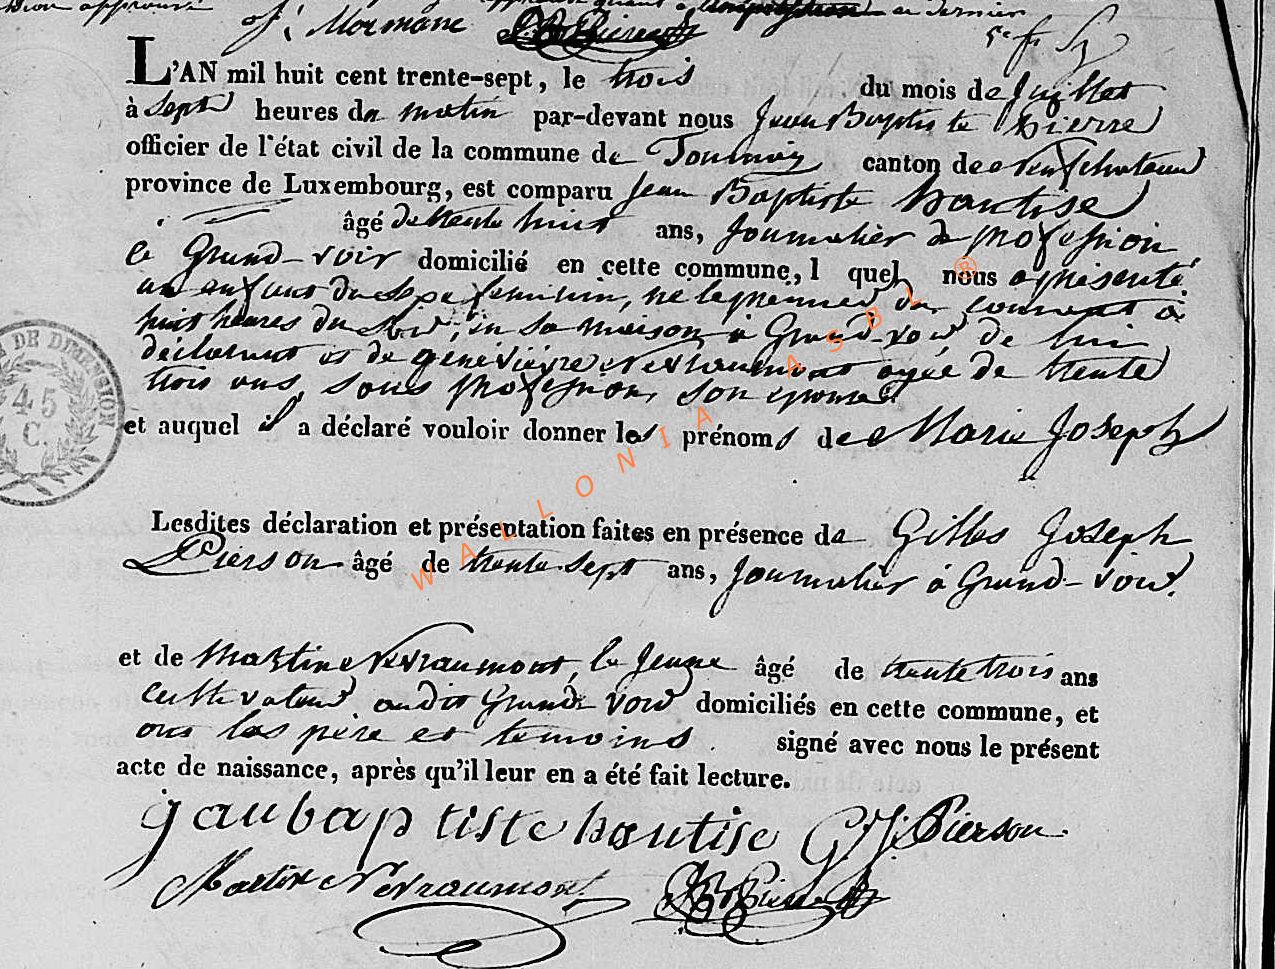 approuvé
dernier
J. Mormane J B Pierre
L'AN mil huit cent trente-sept, le trois du mois de Juillet
à sept heures du matin par-devant nous Jean Baptiste Pierre
officier de l'état civil de la commune de Tournay canton de Neufchateau
province de Luxembourg, est comparu Jean Baptiste hautise
âgé de trente huit ans, journalier de profession
à Grand-voir domicilié en cette commune, l quel nous a présenté
un enfant du sexe feminin, né le premier du courant à
huit heures du soir, en sa maison à Grand-voir de lui
déclarant et de géneviéve Nevraumont agée de trente
trois ans, sous profession, son epouse
et auquel il a déclaré vouloir donner les prénoms de Marie Joseph
Lesdites déclaration et présentation faites en présence de Gilles Joseph
Pierson âgé de trente sept ans, journalier à Grand-voir.
et de Martin Nevraumont, le jeune âgé de trente trois ans
cultivateur audit Grand voir domiciliés en cette commune, et
ont les père et temoins signé avec nous le présent
acte de naissance, après qu'il leur en a été fait lecture.
jaubaptiste hautise G J Pierson
Martin Nevraumont J B Pierre
DE DIMENSION
45
C.
WALLONIA ASBL ®